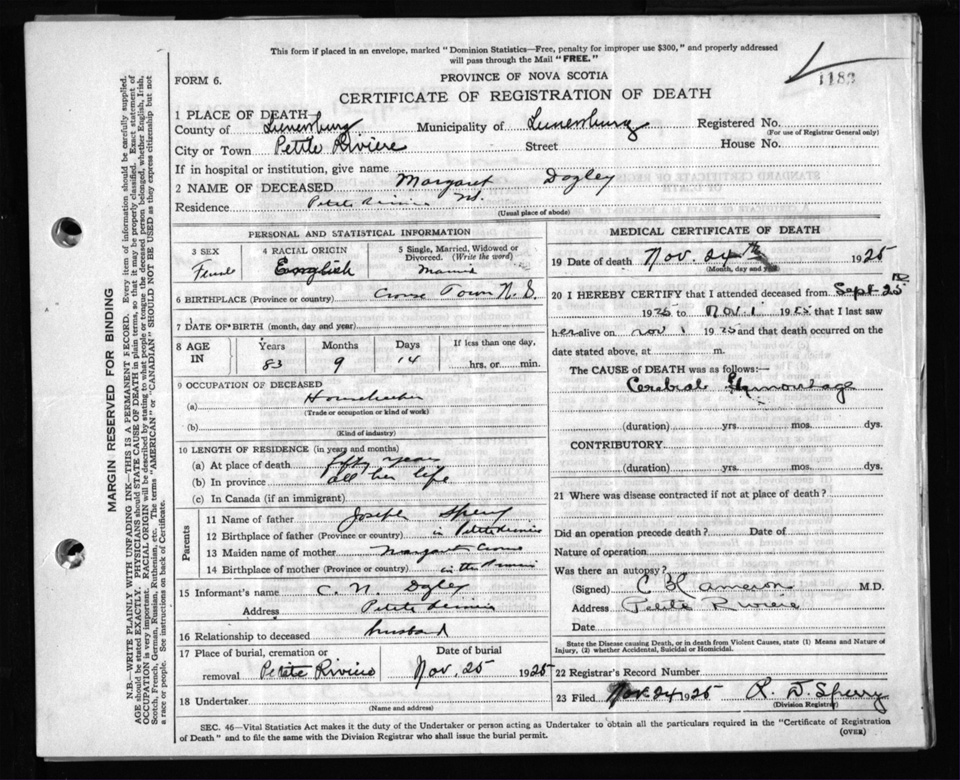 This form if placed in an envelope, marked "Dominion Statistics—Free, penalty for improper use $300," and properly addressed
will pass through the Mail "FREE."
FORM 6.
PROVINCE OF NOVA SCOTIA
1183
CERTIFICATE OF REGISTRATION OF DEATH
1 PLACE OF DEATH
County of Lunenburg Municipality of Lunenburg Registered No.
(For use of Registrar General only)
City or Town Petite Riviere Street House No.
If in hospital or institution, give name
2 NAME OF DECEASED Margaret Dogley
Residence Petite Riviere NS.
(Usual place of abode)
PERSONAL AND STATISTICAL INFORMATION
3 SEX 4 RACIAL ORIGIN 5 Single, Married, Widowed or
Divorced. (Write the word)
Female English Married
6 BIRTHPLACE (Province or country) Crouse Town N.S.
7 DATE OF BIRTH (month, day and year)
8 AGE IN Years Months Days If less than one day,
83 9 14 hrs. or min.
9 OCCUPATION OF DECEASED
(a) Housekeeper
(Trade or occupation or kind of work)
(b)
(Kind of industry)
10 LENGTH OF RESIDENCE (in years and months)
(a) At place of death fifty years
(b) In province all her life
(c) In Canada (if an immigrant)
Parents
11 Name of father Joseph Sperry
12 Birthplace of father (Province or country) in Petite Riviere
13 Maiden name of mother Margaret Crouse
14 Birthplace of mother (Province or country) in the
15 Informant's name C. N. Dogley
Address Petite Riviere
16 Relationship to deceased husband
17 Place of burial, cremation or Date of burial
removal Petite Riviere Nov. 25 1925
18 Undertaker
(Name and address)
MEDICAL CERTIFICATE OF DEATH
19 Date of death Nov. 24th 1925
(Month, day and year)
20 I HEREBY CERTIFY that I attended deceased from Sept 25
1925 to Nov 1 1925 that I last saw
her alive on Nov 1 1925 and that death occurred on the
date stated above, at m.
The CAUSE of DEATH was as follows:—
Cerebral Hemorrhage
(duration) yrs. mos. dys.
CONTRIBUTORY
(duration) yrs. mos. dys.
21 Where was disease contracted if not at place of death?
Did an operation precede death? Date of
Nature of operation
Was there an autopsy?
(Signed) Cameron M.D.
Address Petite Riviere
Date
State the Disease causing Death, or in death from Violent Causes, state (1) Means and Nature of
Injury, (2) whether Accidental, Suicidal or Homicidal.
22 Registrar's Record Number
23 Filed Nov. 24 1925 R. D. Sperry
(Division Registrar)
SEC. 46—Vital Statistics Act makes it the duty of the Undertaker or person acting as Undertaker to obtain all the particulars required in the "Certificate of Registration
of Death" and to file the same with the Division Registrar who shall issue the burial permit.
(OVER)
MARGIN RESERVED FOR BINDING
N.B.—WRITE PLAINLY WITH UNFADING INK—THIS IS A PERMANENT RECORD. Every item of information should be carefully supplied.
AGE should be stated EXACTLY. PHYSICIANS should STATE CAUSE OF DEATH in plain terms, so that it may be properly classified. Exact statement of
OCCUPATION is very important. RACIAL ORIGIN will be described by stating to what people or tongue the deceased person belonged, whether English, Irish,
Scotch, French, German, Russian, Ruthenian, etc. The terms "AMERICAN" or "CANADIAN" SHOULD NOT BE USED as they express citizenship but not
a race or people. See instructions on back of Certificate.